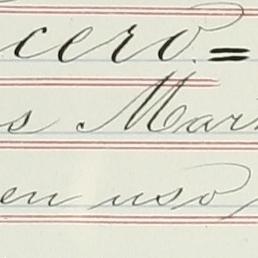 cero.=
s Mar
en uso